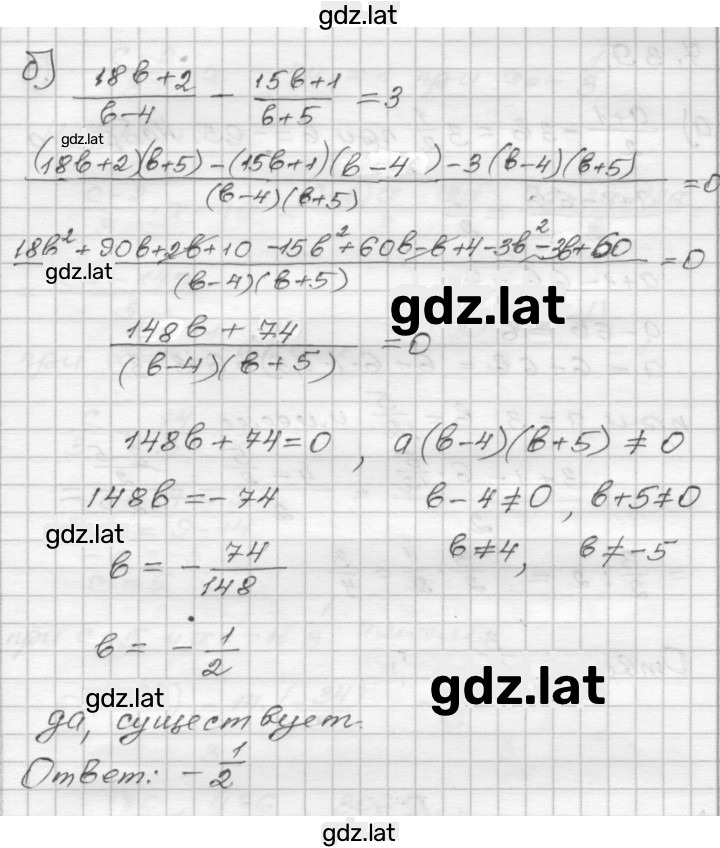 gdz.lat
б) (18в+2)/(в-4) - (15в+1)/(в+5) = 3
gdz.lat
((18в+2)(в+5) - (15в+1)(в-4) - 3(в-4)(в+5))/((в-4)(в+5)) = 0
(18в² + 90в + 2в + 10 - 15в² + 60в - в + 4 - 3в² - 3в + 60)/((в-4)(в+5)) = 0
gdz.lat
gdz.lat
(148в + 74)/((в-4)(в+5)) = 0
148в + 74 = 0 , а(в-4)(в+5) ≠ 0
148в = -74 в-4≠0, в+5≠0
gdz.lat
в = -74/148 в≠4, в≠-5
в = -1/2
gdz.lat
gdz.lat
да, существует.
Ответ: -1/2
gdz.lat